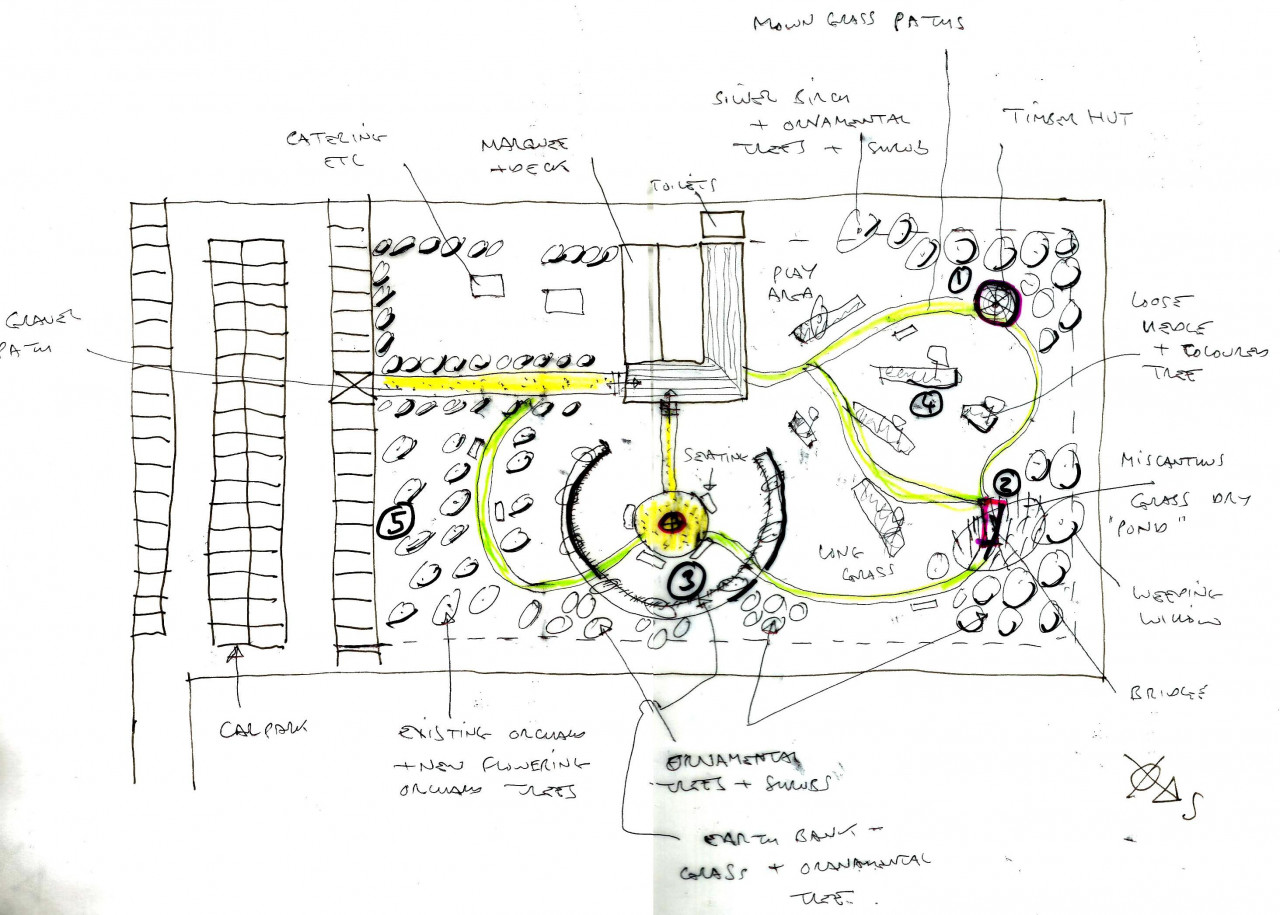 MOWN GRASS PATHS
SILVER BIRCH
+ ORNAMENTAL
TREES + SHRUB
TIMBER HUT
CATERING
ETC
MARQUEE
+ DECK
TOILETS
PLAY
AREA
1
GRAVEL
PATH
LOOSE
HEDGE
+ COLOURED
TREE
4
SEATING
2
MISCANTHUS
GRASS DRY
"POND"
5
LONG
GRASS
3
WEEPING
WILLOW
BRIDGE
CAR PARK
EXISTING ORCHARD
+ NEW FLOWERING
ORCHARD TREES
ORNAMENTAL
TREES + SHRUBS
EARTH BANK -
GRASS + ORANAMENTAL
TREE.
S